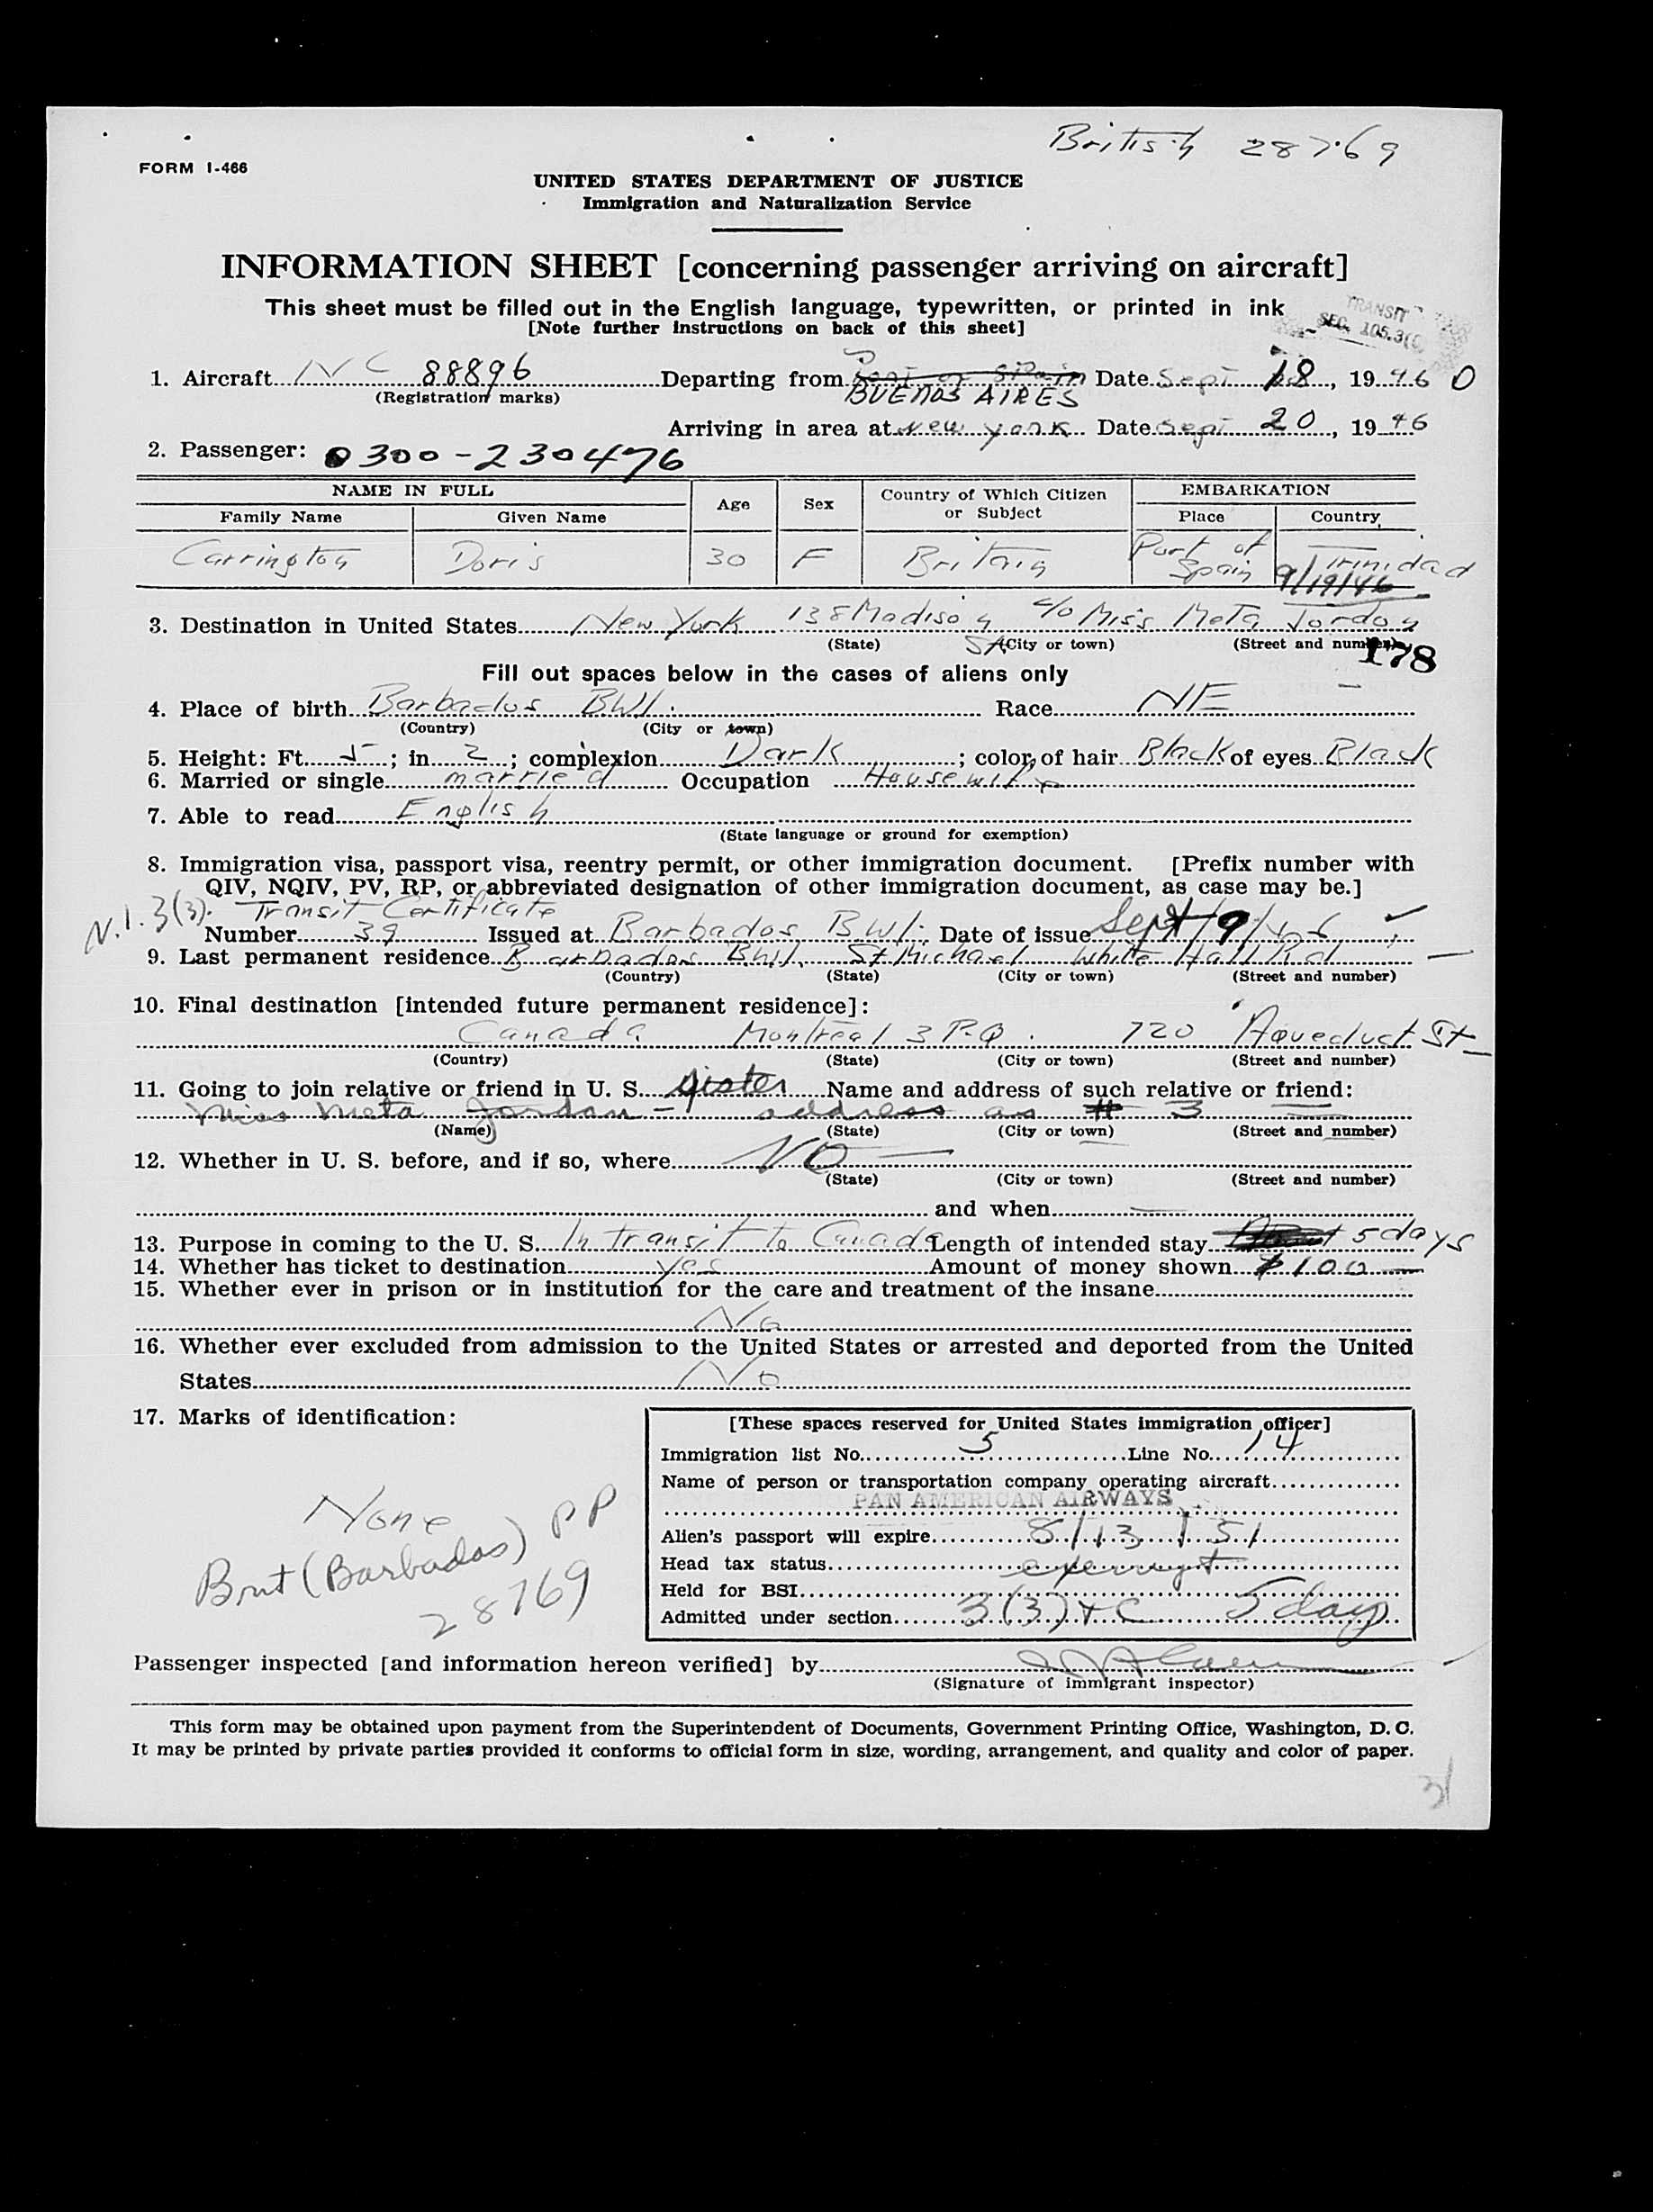 British 28769
FORM I-466
UNITED STATES DEPARTMENT OF JUSTICE
Immigration and Naturalization Service
INFORMATION SHEET [concerning passenger arriving on aircraft]
This sheet must be filled out in the English language, typewritten, or printed in ink
[Note further instructions on back of this sheet]
TRANSIT
SEC. 105.3(
1. Aircraft NC 88896 Departing from Port of Spain Date Sept 18, 1946 0
(Registration marks) BUENOS AIRES
Arriving in area at New York Date Sept 20, 1946
2. Passenger: 0300-230476
NAME IN FULL Age Sex Country of Which Citizen or Subject EMBARKATION
Family Name Given Name Place Country
Carrington Doris 30 F Britain Port of Spain Trinidad
9/19/46
3. Destination in United States New York 138 Madison c/o Miss Meta Jordon
(State) St (City or town) (Street and number)
178
Fill out spaces below in the cases of aliens only
4. Place of birth Barbados BWI. Race NE
(Country) (City or town)
5. Height: Ft. 5; in. 2; complexion Dark; color of hair Black of eyes Black
6. Married or single married Occupation Housewife
7. Able to read English
(State language or ground for exemption)
8. Immigration visa, passport visa, reentry permit, or other immigration document. [Prefix number with
QIV, NQIV, PV, RP, or abbreviated designation of other immigration document, as case may be.]
N.I. 3(3). Transit Certificate
Number 39 Issued at Barbados BWI. Date of issue Sept/9/46
9. Last permanent residence Barbados BWI. St Michael White Hall Rd
(Country) (State) (City or town) (Street and number)
10. Final destination [intended future permanent residence]:
Canada Montreal 3 P.Q. 720 Aqueduct St
(Country) (State) (City or town) (Street and number)
11. Going to join relative or friend in U. S. sister Name and address of such relative or friend:
Miss Meta Jordan - address as # 3
(Name) (State) (City or town) (Street and number)
12. Whether in U. S. before, and if so, where NO
(State) (City or town) (Street and number)
and when
13. Purpose in coming to the U. S. In transit to Canada Length of intended stay 5 days
14. Whether has ticket to destination yes Amount of money shown $100
15. Whether ever in prison or in institution for the care and treatment of the insane
No
16. Whether ever excluded from admission to the United States or arrested and deported from the United
States No
17. Marks of identification:
None
Brit (Barbados) PP
28769
[These spaces reserved for United States immigration officer]
Immigration list No. 5 Line No. 14
Name of person or transportation company operating aircraft
PAN AMERICAN AIRWAYS
Alien's passport will expire 8/13/51
Head tax status exempt
Held for BSI
Admitted under section 3(3) TC 5 days
Passenger inspected [and information hereon verified] by
(Signature of immigrant inspector)
This form may be obtained upon payment from the Superintendent of Documents, Government Printing Office, Washington, D. C.
It may be printed by private parties provided it conforms to official form in size, wording, arrangement, and quality and color of paper.
31